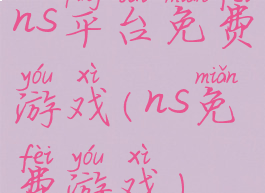 ns平台免费
yóu xì miǎn
游戏(ns免
fèi yóu xì
费游戏)